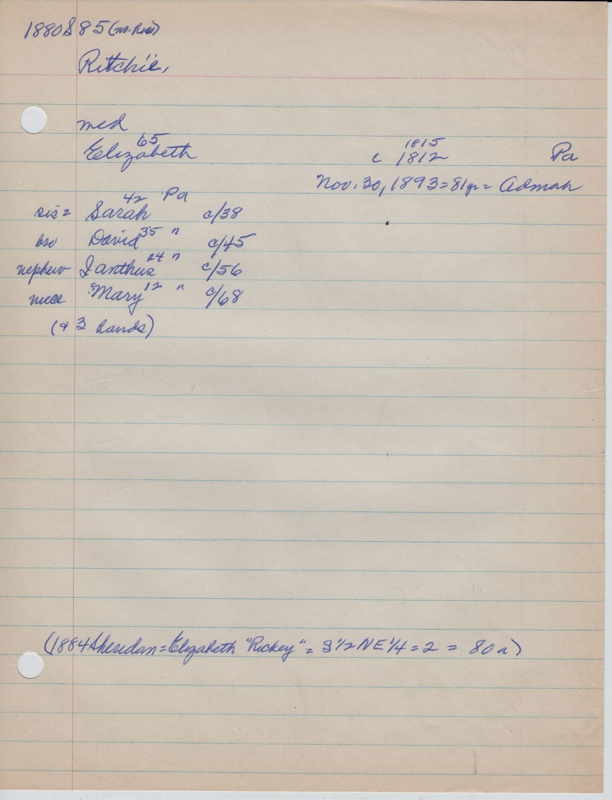 1880 S 85 (no. Rec)
Ritchie,
med
65
Elizabeth
1815
c 1812 Pa
Nov. 30, 1893 = 81yr = Admah
42 Pa
sis = Sarah c/38
bro David 35 " c/45
nephew Ianthus 24 " c/56
niece Mary 12 " c/68
(+ 3 hands)
(1884 Sheridan = Elizabeth "Rickey" = S 1/2 NE 1/4 = 2 = 80 a)